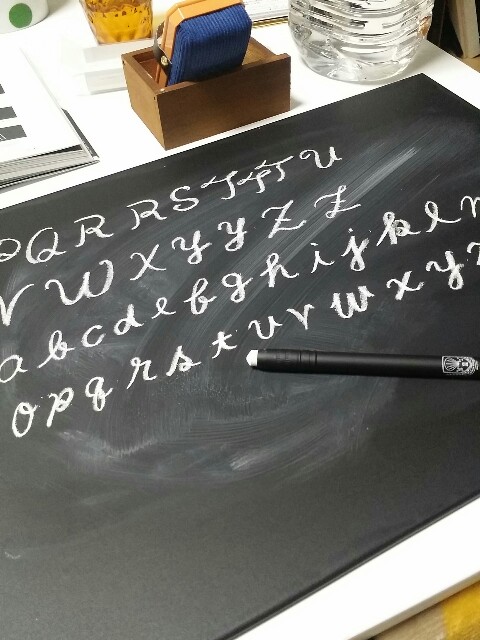 PQRRSTTTU
VWXYYZZ
abcdefghijklm
opqrstuvwxyz